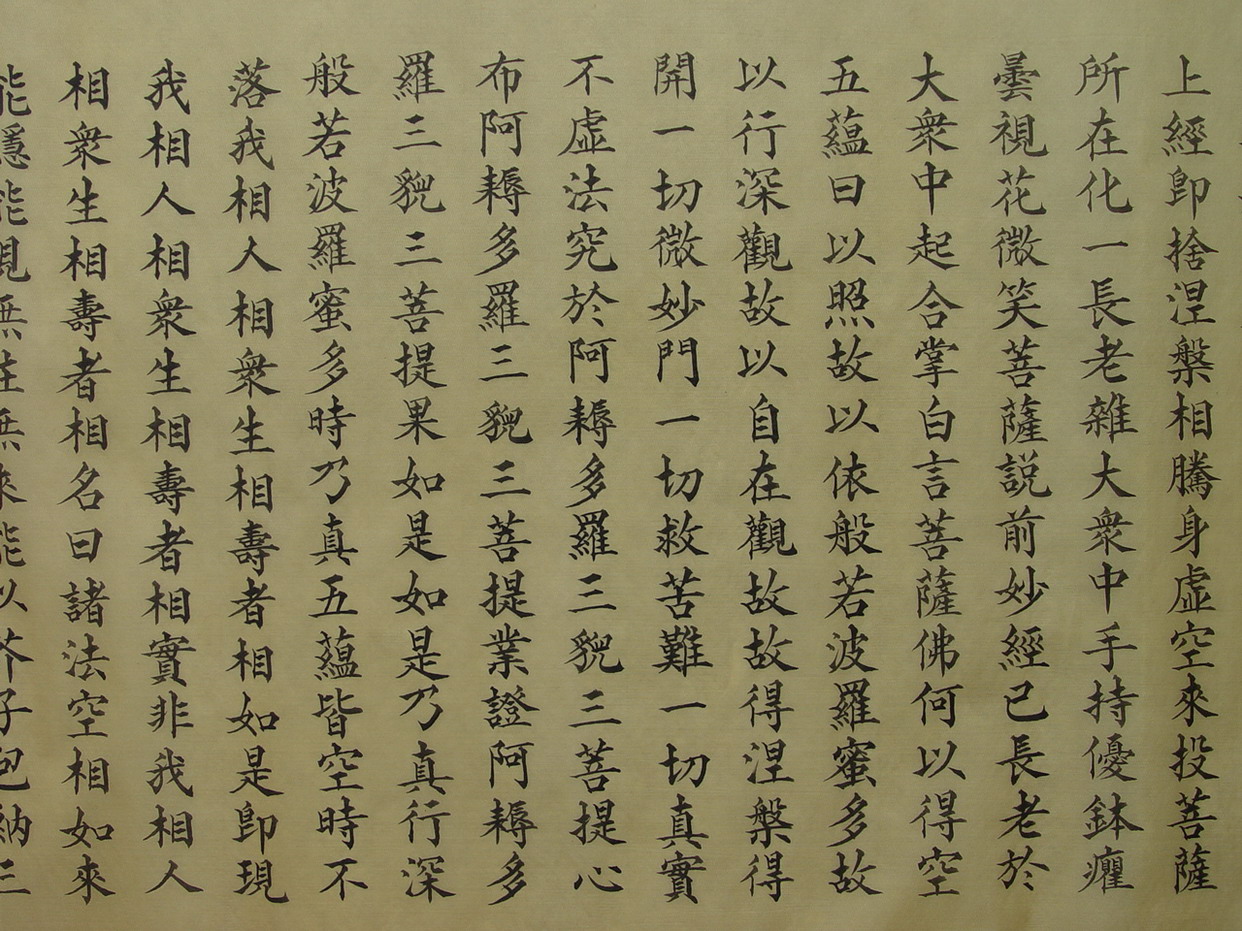 上經即捨涅槃相騰身虛空來投菩薩
所在化一長老雜大衆中手持優鉢癯
曇視花微笑菩薩説前妙經已長老於
大衆中起合掌白言菩薩佛何以得空
五蘊曰以照故以依般若波羅蜜多故
以行深觀故以自在觀故故得涅槃得
開一切微妙門一切救苦難一切真實
不虛法究於阿耨多羅三貎三菩提心
布阿耨多羅三貎三菩提業證阿耨多
羅三貎三菩提果如是如是乃真行深
般若波羅蜜多時乃真五蘊皆空時不
落我相人相衆生相壽者相如是即現
我相人相衆生相壽者相實非我相人
相衆生相壽者相名曰諸法空相如來
能隱能現無住無來能以芥子包納三